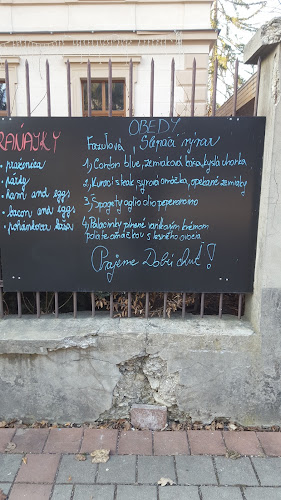 RAŇAJKY
• praženica
• párky
• ham and eggs
• bacon and eggs
• pohánková kaša
OBEDY
Fazuľová Slepačí vývar
1, Cordon blue, zemiaková kaša, kyslá uhorka
2, Kurací steak, syrová omáčka, opekané zemiaky
3, Špagety aglio olio peperoncino
4, Palacinky plnené vankovým krémom
poliate omáčkou s lesného ovocia
Prajeme Dobrú chuť!